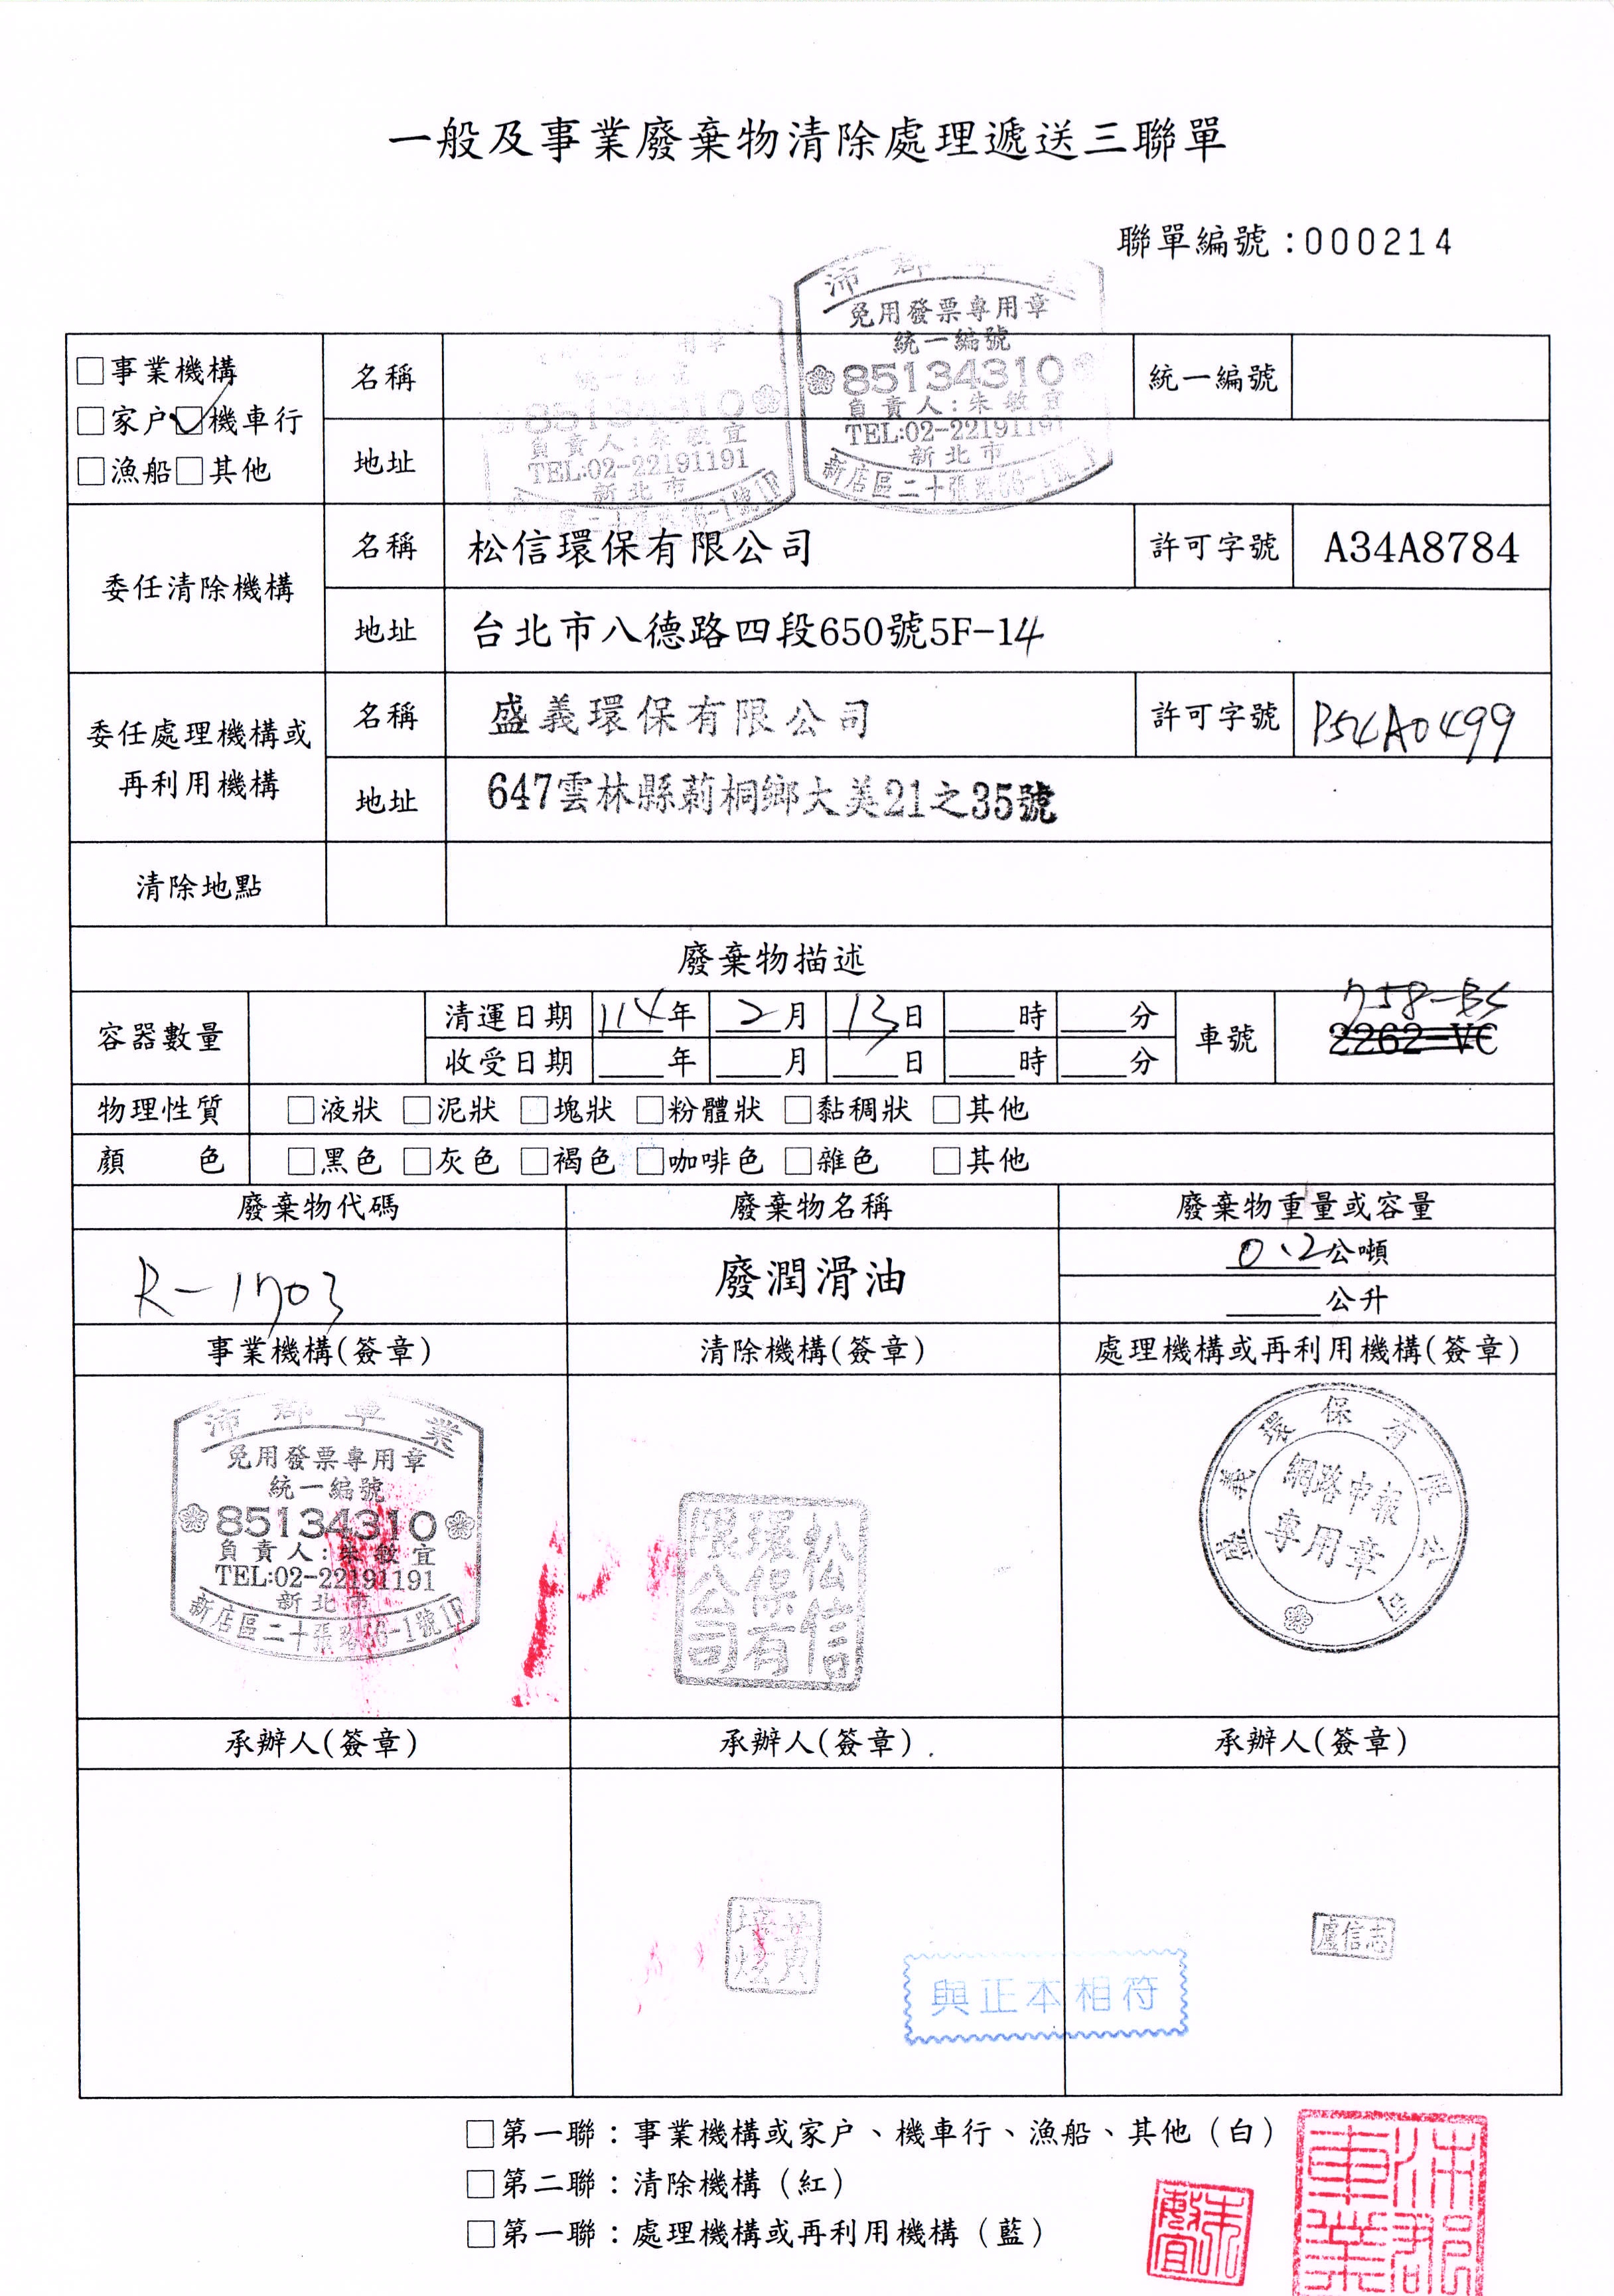 一般及事業廢棄物清除處理遞送三聯單
聯單編號：000214
沛郡車業
免用發票專用章
統一編號
85134310
負責人：朱敏宜
TEL:02-22191191
新北市
新店區二十張路66-1號1F
85134310
負責人：朱敏宜
TEL:02-22191191
新北市
□事業機構
□家戶☑機車行
□漁船□其他
名稱
統一編號
地址
委任清除機構
名稱 松信環保有限公司 許可字號 A34A8784
地址 台北市八德路四段650號5F-14
委任處理機構或
再利用機構
名稱 盛義環保有限公司 許可字號 P54A0499
地址 647雲林縣莿桐鄉大美21之35號
清除地點
廢棄物描述
容器數量
清運日期 114年 2月 13日 時 分
收受日期 年 月 日 時 分
車號 758-BS
2262-VC
物理性質 □液狀 □泥狀 □塊狀 □粉體狀 □黏稠狀 □其他
顏色 □黑色 □灰色 □褐色 □咖啡色 □雜色 □其他
廢棄物代碼 廢棄物名稱 廢棄物重量或容量
R-1703 廢潤滑油 0.2公噸
公升
事業機構(簽章) 清除機構(簽章) 處理機構或再利用機構(簽章)
沛郡車業
免用發票專用章
統一編號
85134310
負責人：朱敏宜
TEL:02-22191191
新北市
新店區二十張路66-1號1F
松信環保有限公司
盛義環保有限公司
網路申報
專用章
承辦人(簽章) 承辦人(簽章) 承辦人(簽章)
黃培炫
盧信志
與正本相符
□第一聯：事業機構或家戶、機車行、漁船、其他（白）
□第二聯：清除機構（紅）
□第一聯：處理機構或再利用機構（藍）
朱敏宜
沛郡車業